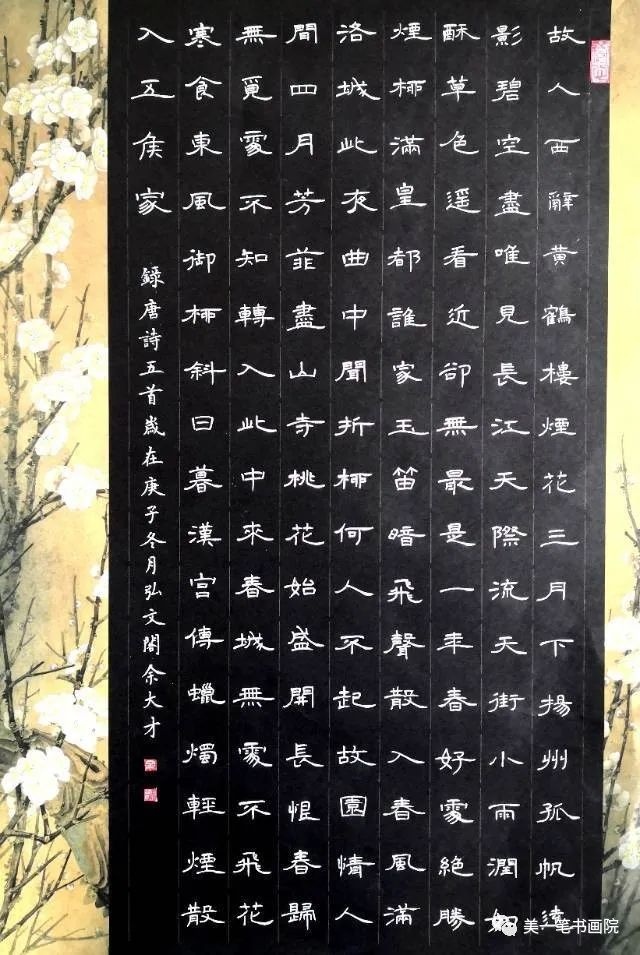 故人西辭黃鶴樓煙花三月下揚州孤帆遠
影碧空盡唯見長江天際流天街小雨潤如
酥草色遥看近卻無最是一年春好處絕勝
煙柳滿皇都誰家玉笛暗飛聲散入春風滿
洛城此夜曲中聞折柳何人不起故園情人
間四月芳菲盡山寺桃花始盛開長恨春歸
無覓處不知轉入此中來春城無處不飛花
寒食東風御柳斜日暮漢宮傳蠟燭輕煙散
入五侯家
錄唐詩五首歲在庚子冬月弘文閣余大才
美一笔书画院